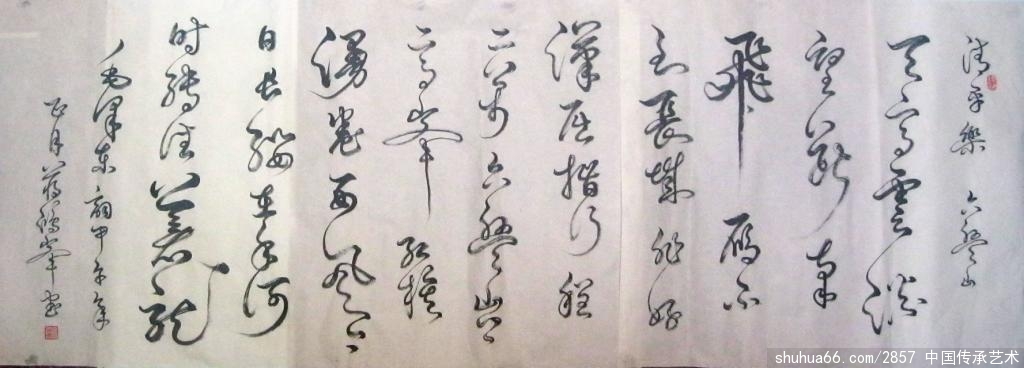 清平樂 六盤山
天高雲淡
望断南
飛雁不
到長城非好
漢屈指行程
二万六盤山上
高峰红旗
漫卷西风今
日長缨在手何
时缚住苍龙
毛澤東詞甲午年
正月 峰書
shuhua66.com/2857 中国传承艺术